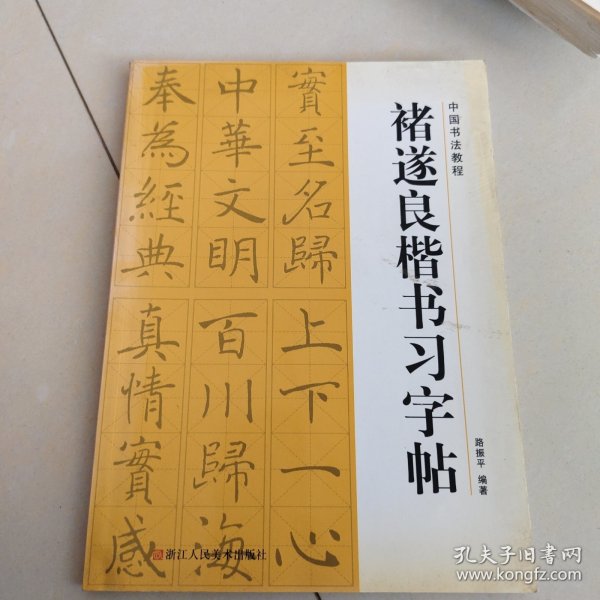 中国书法教程
褚遂良楷书习字帖
路振平 编著
實至名歸
中華文明
奉為經典
上下一心
百川歸海
真情實感
浙江人民美术出版社
孔夫子旧书网
www.kongfz.com